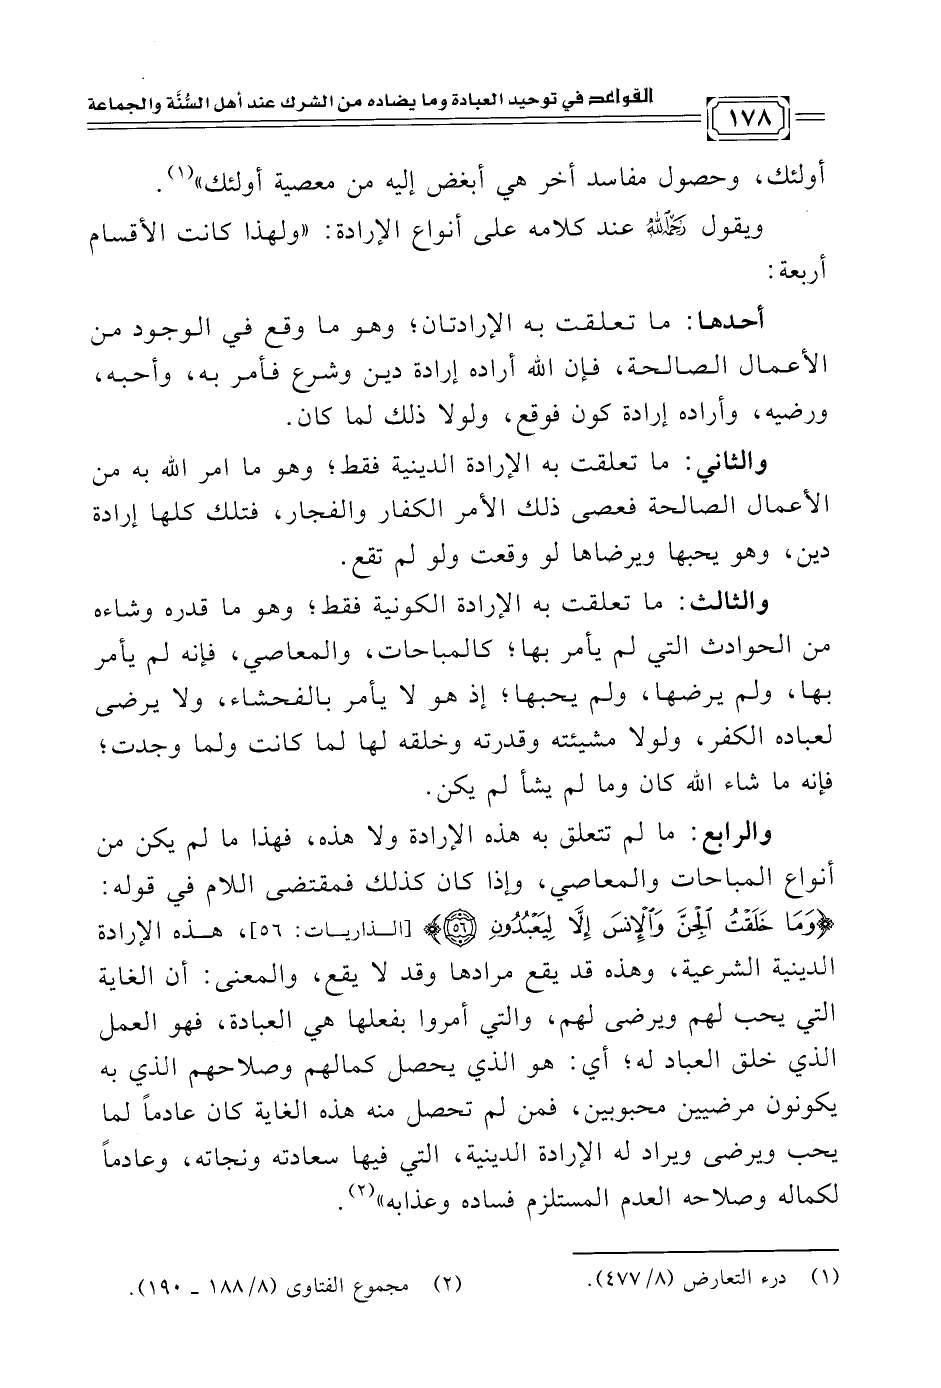 القواعد في توحيد العبادة وما يضاده من الشرك عند أهل السُّنَّة والجماعة
١٧٨
أولئك، وحصول مفاسد أخر هي أبغض إليه من معصية أولئك»(١).
ويقول رَحِمَهُ اللهُ عند كلامه على أنواع الإرادة: «ولهذا كانت الأقسام
أربعة:
أحدها: ما تعلقت به الإرادتان؛ وهو ما وقع في الوجود من
الأعمال الصالحة، فإن الله أراده إرادة دين وشرع فأمر به، وأحبه،
ورضيه، وأراده إرادة كون فوقع، ولولا ذلك لما كان.
والثاني: ما تعلقت به الإرادة الدينية فقط؛ وهو ما امر الله به من
الأعمال الصالحة فعصى ذلك الأمر الكفار والفجار، فتلك كلها إرادة
دين، وهو يحبها ويرضاها لو وقعت ولو لم تقع.
والثالث: ما تعلقت به الإرادة الكونية فقط؛ وهو ما قدره وشاءه
من الحوادث التي لم يأمر بها؛ كالمباحات، والمعاصي، فإنه لم يأمر
بها، ولم يرضها، ولم يحبها؛ إذ هو لا يأمر بالفحشاء، ولا يرضى
لعباده الكفر، ولولا مشيئته وقدرته وخلقه لها لما كانت ولما وجدت؛
فإنه ما شاء الله كان وما لم يشأ لم يكن.
والرابع: ما لم تتعلق به هذه الإرادة ولا هذه، فهذا ما لم يكن من
أنواع المباحات والمعاصي، وإذا كان كذلك فمقتضى اللام في قوله:
﴿وَمَا خَلَقْتُ ٱلْجِنَّ وَٱلْإِنسَ إِلَّا لِيَعْبُدُونِ ٥٦﴾ [الذاريات: ٥٦]، هذه الإرادة
الدينية الشرعية، وهذه قد يقع مرادها وقد لا يقع، والمعنى: أن الغاية
التي يحب لهم ويرضى لهم، والتي أمروا بفعلها هي العبادة، فهو العمل
الذي خلق العباد له؛ أي: هو الذي يحصل كمالهم وصلاحهم الذي به
يكونون مرضيين محبوبين، فمن لم تحصل منه هذه الغاية كان عادماً لما
يحب ويرضى ويراد له الإرادة الدينية، التي فيها سعادته ونجاته، وعادماً
لكماله وصلاحه العدم المستلزم فساده وعذابه»(٢).
(١) درء التعارض (٨/ ٤٧٧).
(٢) مجموع الفتاوى (٨/ ١٨٨ ـ ١٩٠).